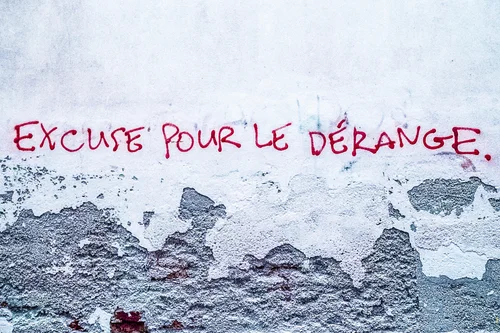 EXCUSE POUR LE DÉRANGE.